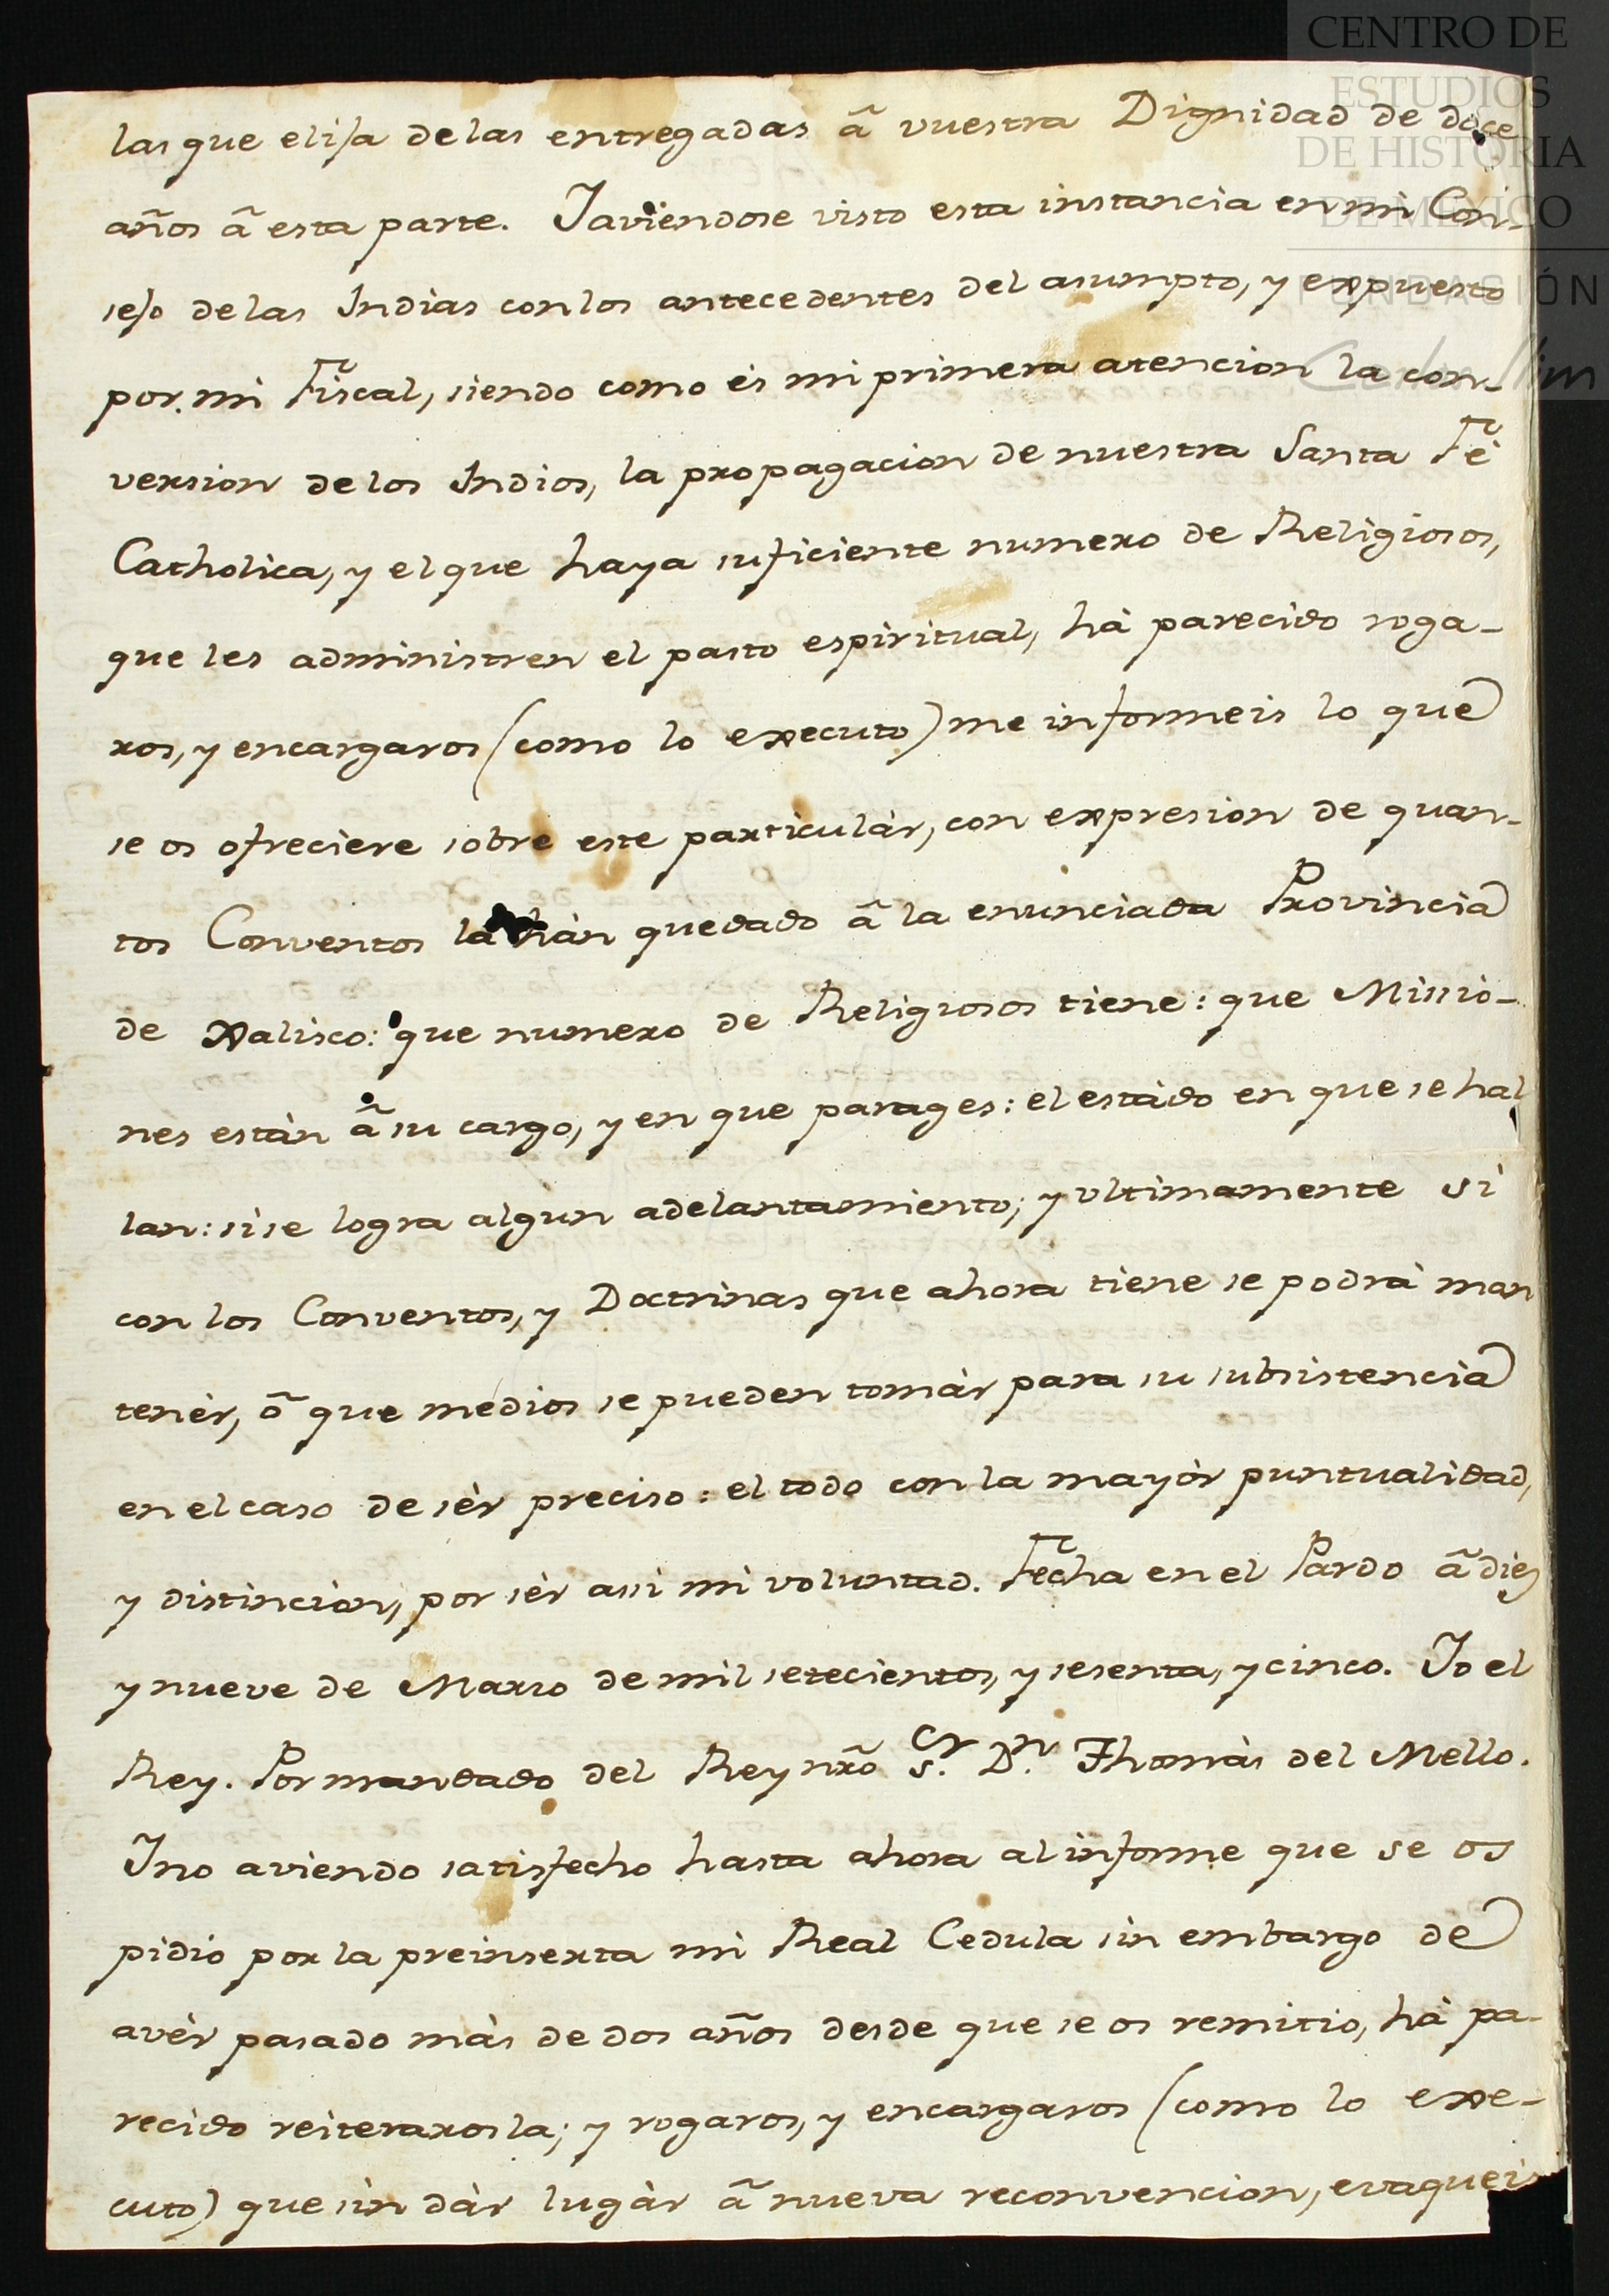 CENTRO DE
ESTUDIOS
DE HISTORIA
DE MÉXICO
FUNDACIÓN
Carlos Slim
las que elija de las entregadas â vuestra Dignidad de doce
años â esta parte. Iaviendose visto esta instancia en mi Con-
sejo de las Indias con los antecedentes del asumpto, y expuesto
por mi Fiscal, siendo como ès mi primera atencion la con-
version de los Indios, la propagacion de nuestra Santa Fè
Catholica, y el que haya suficiente numero de Religiosos,
que les administren el pasto espiritual, hà parecido roga-
ros, y encargaros (como lo executo) me informeis lo que
se os ofreciere sobre este particulàr, con expresion de quan-
tos Conventos la hàn quedado â la enunciada Provincia
de Xalisco: que numero de Religiosos tiene: que Missio-
nes estàn â su cargo, y en que parages: el estàdo en que se hal
lan: si se logra algun adelantamiento; y ultimamente si
con los Conventos, y Doctrinas que ahora tiene se podrà man
tenèr, ô que medios se pueden tomàr para su subsistencia
en el caso de sèr preciso: el todo con la mayòr puntualidad,
y distincion, por sèr assi mi voluntad. Fecha en el Pardo â diez
y nueve de Marzo de mil setecientos, y sesenta, y cinco. Io el
Rey. Por mandado del Rey nrõ Sr. Dn. Thomàs del Mello.
Ino aviendo satisfecho hasta ahora al informe que se os
pidiò por la preinserta mi Real Cedula sin embargo de
avèr pasado màs de dos años desde que se os remitio, hà pa-
recido reiteraros la; y rogaros, y encargaros (como lo exe-
cuto) que sin dàr lugàr â nueva reconvencion, evaqueis